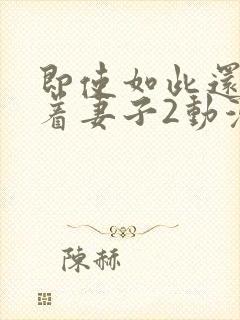 即使如此還
着妻子2動
陳赫